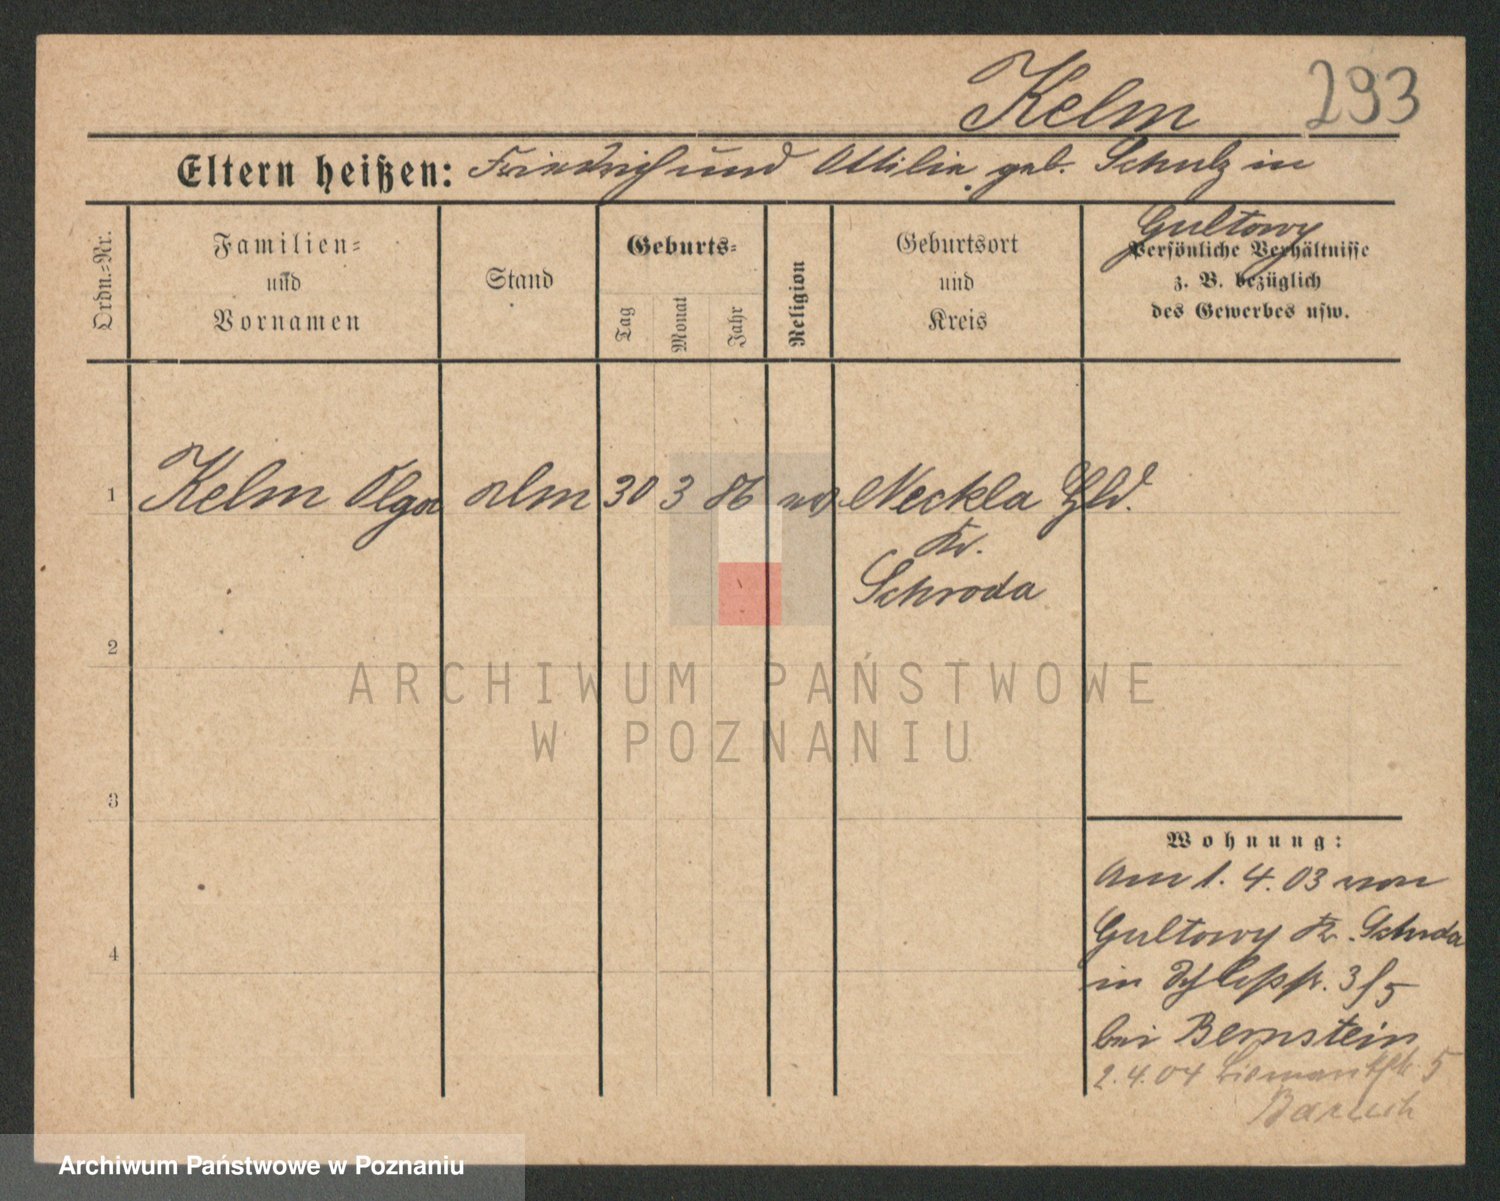 Kelm 293
Eltern heißen: Friedrich und Ottilie geb. Schulz in
Gultowy
Ordn.-Nr.
Familien-
und
Vornamen
Stand
Geburts-
Tag
Monat
Jahr
Religion
Geburtsort
und
Kreis
Persönliche Verhältnisse
z. B. bezüglich
des Gewerbes usw.
1 Kelm Olga 30 3 86 Neckla Hld.
Kr.
Schroda
2
3
4
Wohnung:
Am 1. 4. 03 von
Gultowy Kr. Schroda
in 3/5
bei Bernstein
2.4.04 Bismarckstr. 5
Baruch
ARCHIWUM PAŃSTWOWE
W POZNANIU
Archiwum Państwowe w Poznaniu